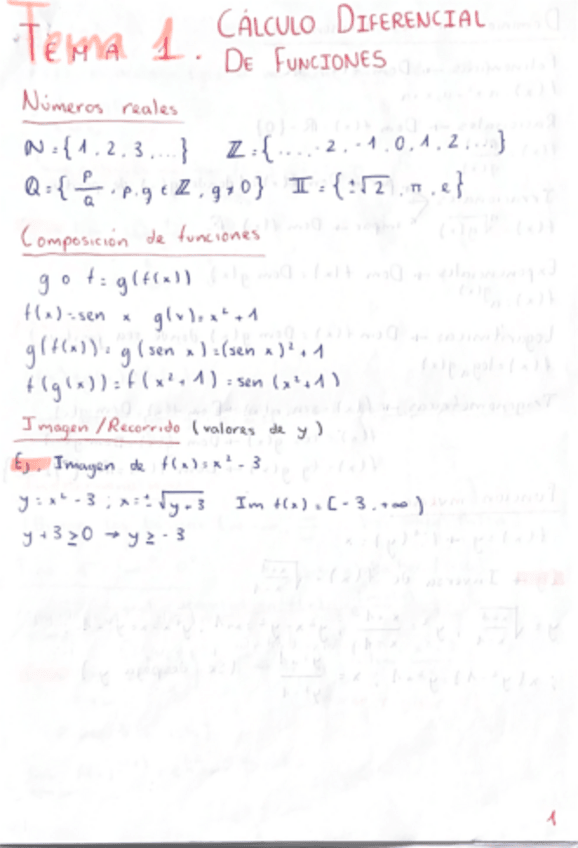 TEMA 1. CÁLCULO DIFERENCIAL
DE FUNCIONES
Números reales
ℕ = {1, 2, 3, ...} ℤ = {..., -2, -1, 0, 1, 2, ...}
ℚ = {p/q, p, q ∈ ℤ, q ≠ 0} 𝕀 = {±√2, π, e}
Composición de funciones
g o f = g(f(x))
f(x) = sen x g(x) = x² + 1
g(f(x)) = g(sen x) = (sen x)² + 1
f(g(x)) = f(x² + 1) = sen (x² + 1)
Imagen/Recorrido (valores de y)
Ej. Imagen de f(x) = x² - 3
y = x² - 3; x = ±√y+3 Im f(x) = [-3, +∞)
y + 3 ≥ 0 → y ≥ -3
1